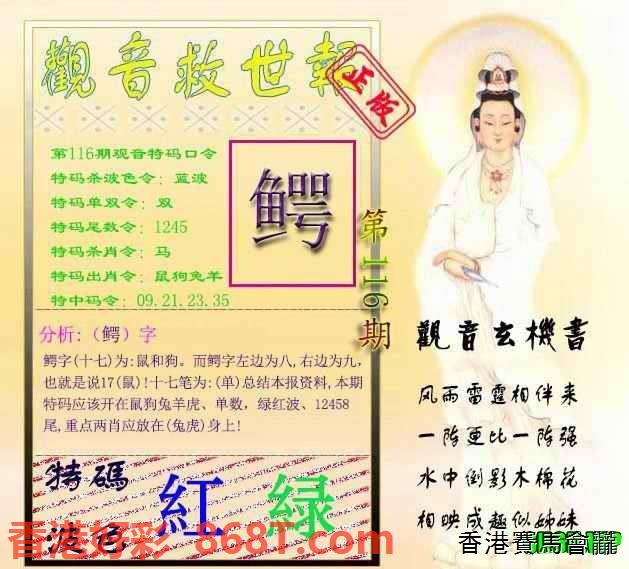 觀音救世報
正版
第116期观音特码口令
特码杀波色令：蓝波
特码单双令：双
特码尾数令：1245
特码杀肖令：马
特码出肖令：鼠狗兔羊
特中码令：09.21.23.35
鳄
第116期
分析:（鳄）字
鳄字(十七)为:鼠和狗。而鳄字左边为八,右边为九，
也就是说17(鼠)!十七笔为:(单)总结本报资料,本期
特码应该开在鼠狗兔羊虎、单数，绿红波、12458
尾,重点两肖应放在(兔虎)身上!
觀音玄機書
风雨雷霆相伴来
一阵更比一阵强
水中倒影木棉花
相映成趣似姊妹
特碼
波色
紅 绿
香港好彩 868T.com
香港賽馬會